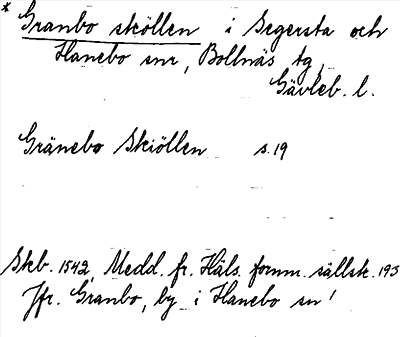 * Granbo sköllen i Segersta och
Hanebo snr, Bollnäs tg,
Gävleb. l.
Gränebo Skiöllen s. 19
Skb. 1542, Medd. fr. Häls. fornm. sällsk. 193
Jfr. Granbo, by i Hanebo sn!